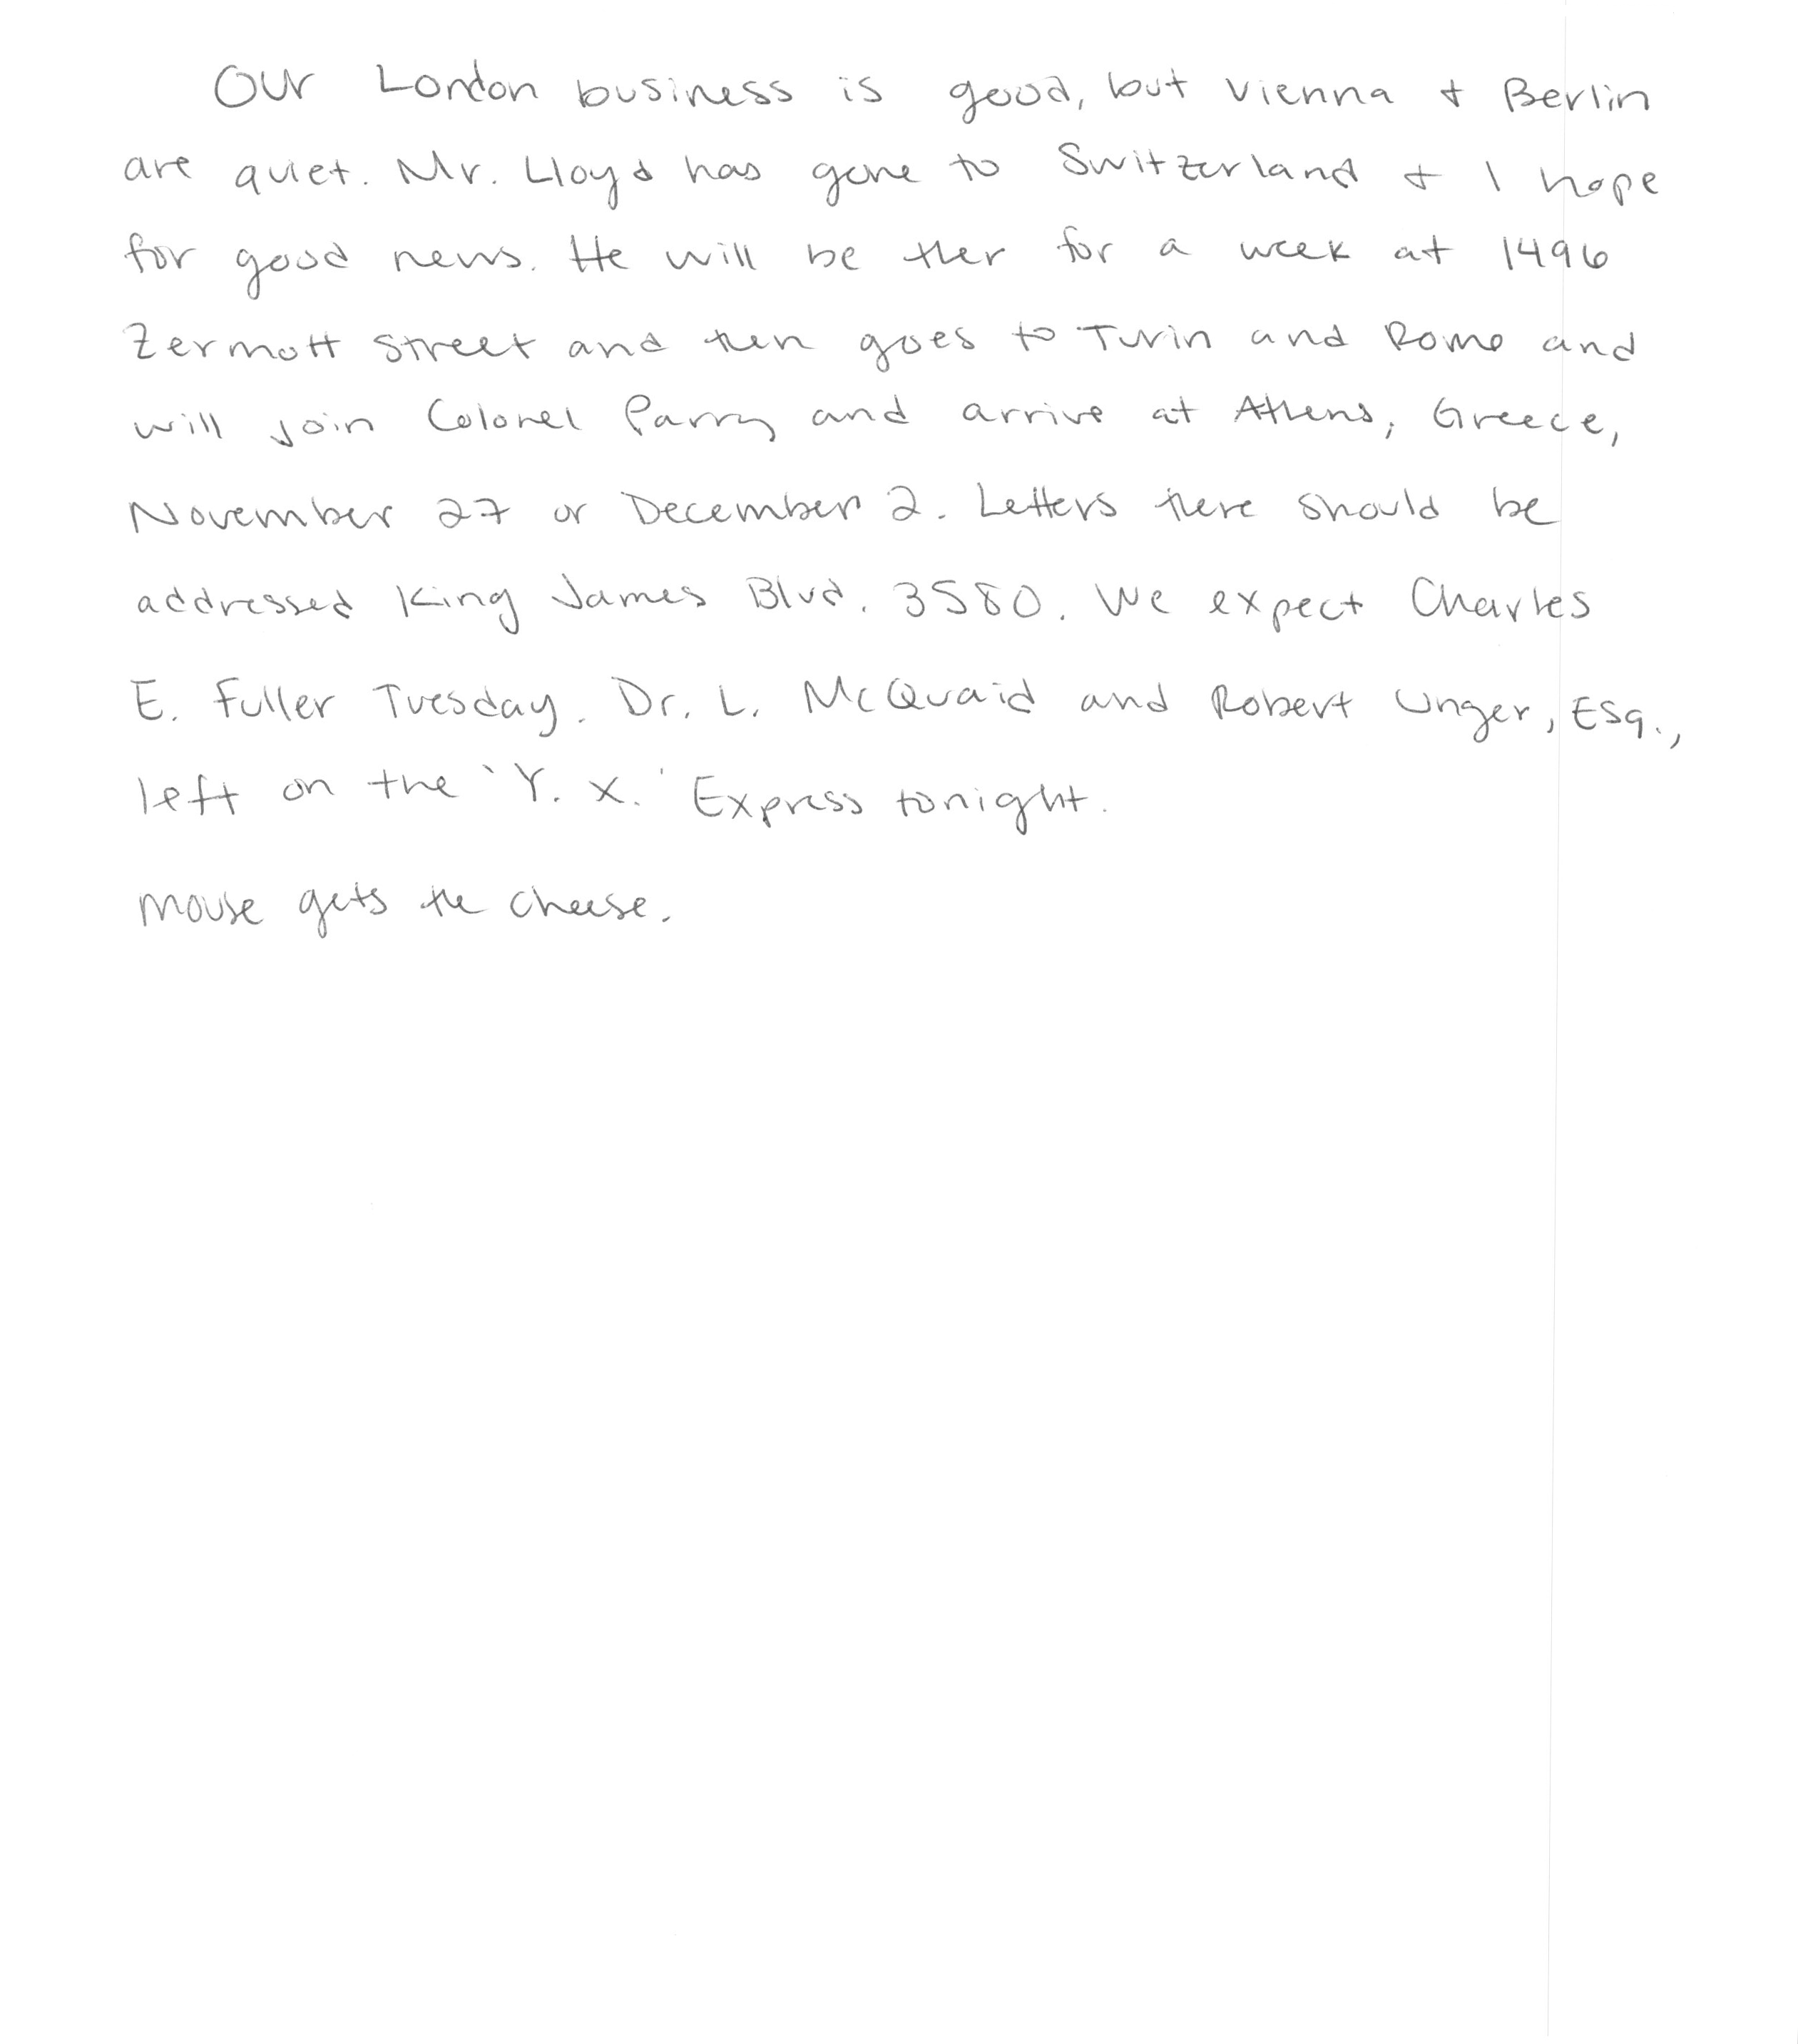 Our London business is good, but Vienna + Berlin
are quiet. Mr. Lloyd has gone to Switzerland + I hope
for good news. He will be ther for a week at 1496
Zermott street and then goes to Turin and Rome and
will join Colonel Parry and arrive at Athens, Greece,
November 27 or December 2. Letters there should be
addressed King James Blvd. 3580. We expect Charles
E. Fuller Tuesday. Dr. L. McQuaid and Robert Unger, Esq.,
left on the 'Y. X.' Express tonight.
mouse gets the cheese.